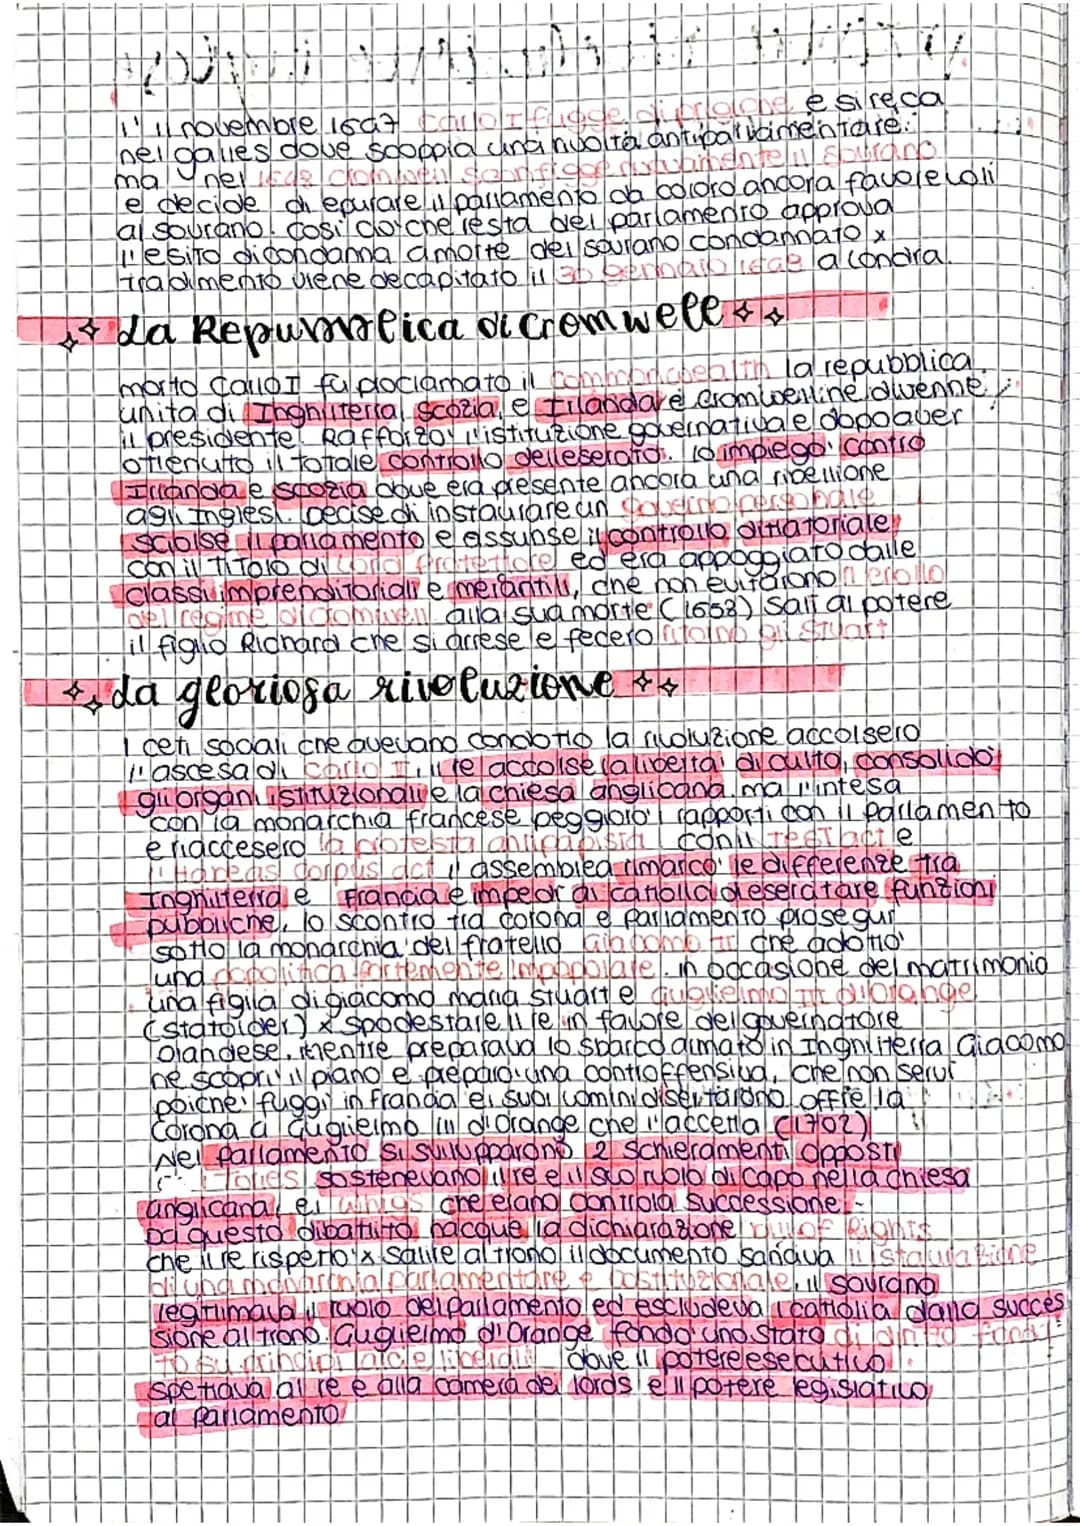 l'11 novembre 1647 Carlo I fugge di prigione e si reca
nel galles dove scoppia una rivolta antiparlamentare.
ma nel 1648 cromwell sconfigge nuovamente il sovrano
e decide di epurare il parlamento da coloro ancora favorevoli
al sovrano. così ciò che resta del parlamento approva
l'esito di condanna a morte del sovrano condannato x
tradimento viene decapitato il 30 gennaio a londra.
La Repubblica di Cromwell
morto Carlo I fu proclamato il commonwealth la repubblica
unita di Inghilterra, Scozia, e Irlanda e ne divenne
il presidente. Rafforzò l'istituzione governativa e dopo aver
ottenuto il totale controllo dell'eserato. lo impiegò contro
Irlanda e scozia dove era presente ancora una ribellione
agli inglesi. Decise di instaurare un Governo personale
sciolse il parlamento e assunse il controllo dittatoriale
con il titolo di Lord Protettore ed era appoggiato dalle
classi imprenditoriali e merantili, che non evitarono il crollo
del regime di cromwell alla sua morte (1658) salì al potere
il figlio Richard che si arrese e fecero ritorno gli Stuart
La gloriosa rivoluzione
I ceti sociali che avevano condotto la rivoluzione accolsero
l'ascesa di Carlo II, il re accolse la libertà di culto, consolidò
gli organi istituzionali e la chiesa anglicana. ma l'intesa
con la monarchia francese peggiorò i rapporti con il parlamento
e riaccesero la protesta antipapista con il Test act e
l'Habeas corpus act l'assemblea rimarcò le differenze tra
Inghilterra e Francia e impedì ai cattolici di esercitare funzioni
pubbliche, lo scontro tra corona e parlamento proseguì
sotto la monarchia del fratello Giacomo II che adottò
una politica fortemente impopolare. in occasione del matrimonio
una figlia di giacomo maria stuart e Guglielmo III d'Orange
(statolder) x spodestare il re in favore del governatore
olandese. mentre preparava lo sbarco armato in Inghilterra Giacomo
ne scoprì il piano e preparò una controffensiva, che non servì
poiché fuggì in francia e i suoi uomini disertarono. offrì la
corona a Guglielmo III d'Orange che l'accetta (1702)
Nel Parlamento si svilupparono 2 schieramenti opposti
i Tories sostenevano il re e il suo ruolo di capo nella chiesa
anglicana, e i whigs che erano contro la successione.
Da questo dibattito nacque la dichiarazione Bill of Rights
che il re rispettò x salire al trono il documento sanciva l'istaurazione
di una monarchia parlamentare e costituzionale, il sovrano
legittimava il ruolo del parlamento ed escludeva i cattolici dalla succes
sione al trono. Guglielmo d'Orange fondò uno stato di diritto
su principi laici e liberali dove il potere esecutivo
spettava al re e alla camera dei lords e il potere legislativo
al Parlamento